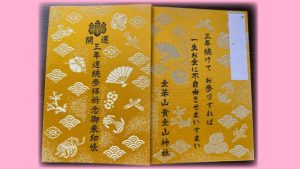 開運
三年連続参拝祈念御朱印帳
三年続けて お参りすれば
一生お金に不自由させまいすまい
金華山黄金山神社